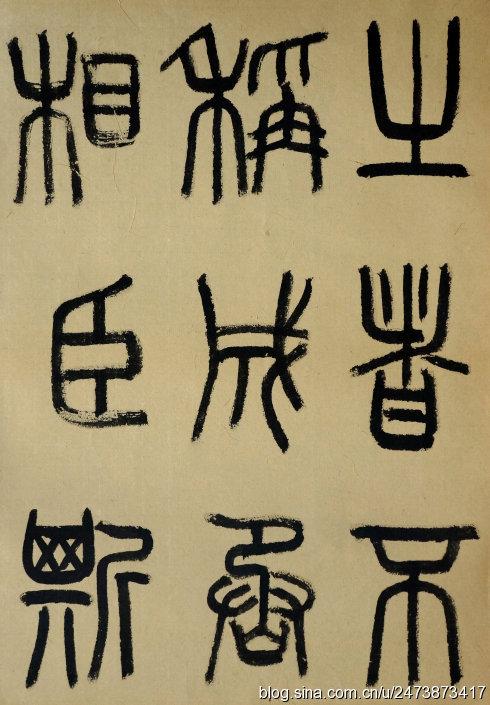 之者不
稱成丞
相臣斯
blog.sina.com.cn/u/2473873417